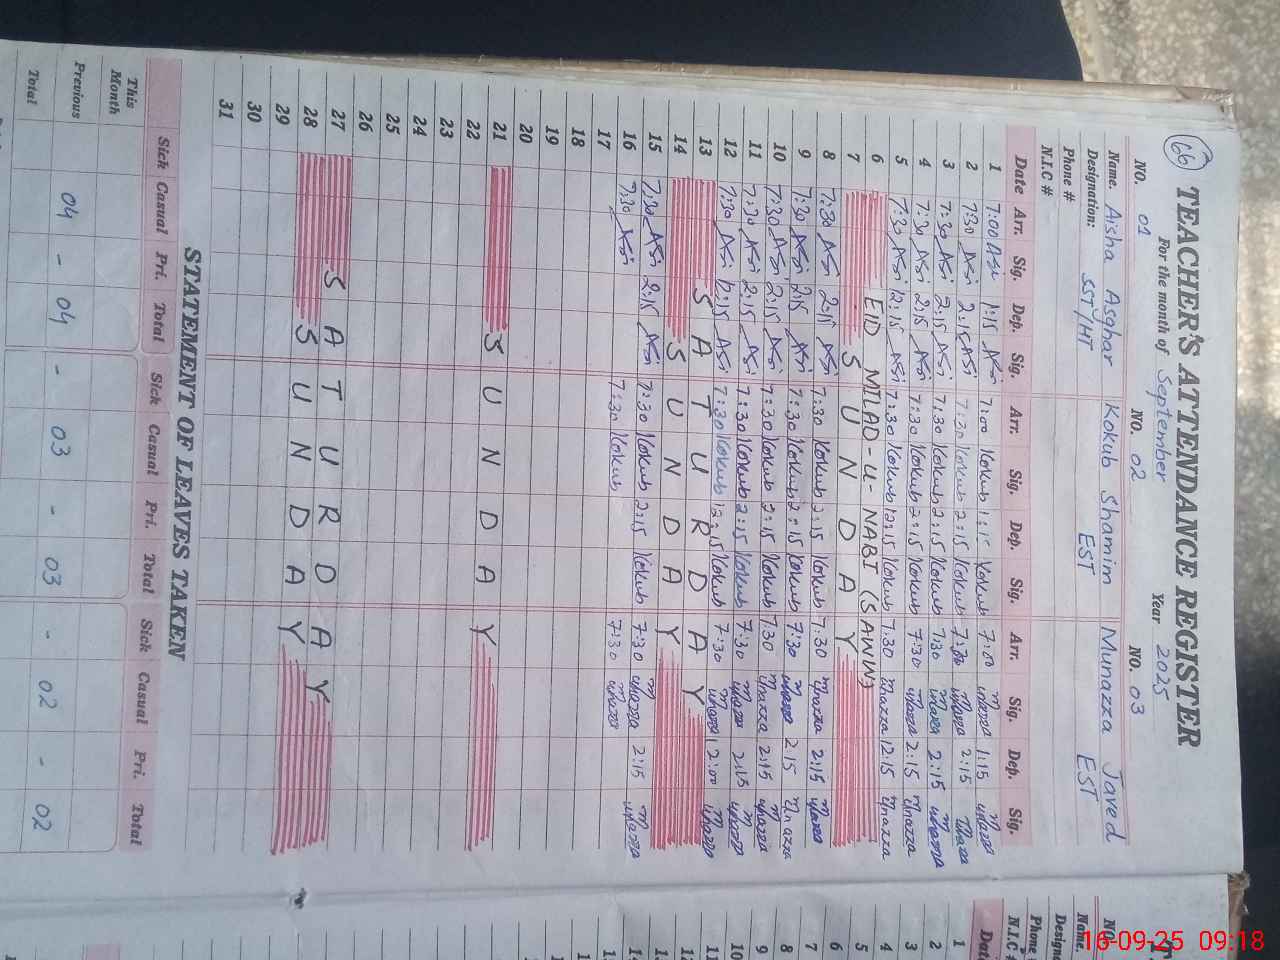 66
TEACHER'S ATTENDANCE REGISTER
For the month of September Year 2025
NO. 01 NO. 02 NO. 03
Name. Aisha Asghar Kokub Shamim Munazza Javed
Designation: SST/HT EST EST
Phone #
N.I.C #
Date Arr. Sig. Dep. Sig. Arr. Sig. Dep. Sig. Arr. Sig. Dep. Sig.
1 7:00 1:15 7:00 Kokub 1:15 Kokub 7:00 1:15
2 7:30 2:15 7:30 Kokub 2:15 Kokub 2:15
3 7:30 2:15 7:30 Kokub 2:15 Kokub 7:30 2:15
4 7:30 2:15 7:30 Kokub 2:15 Kokub 7:30 2:15
5 7:30 12:15 7:30 Kokub 12:15 Kokub 7:30 12:15
6 EID MILAD-U-NABI (SAWW)
7 SUNDAY
8 7:30 2:15 7:30 Kokub 2:15 Kokub 7:30 2:15
9 7:30 2:15 7:30 Kokub 2:15 Kokub 7:30 2:15
10 7:30 2:15 7:30 Kokub 2:15 Kokub 7:30 2:15
11 7:30 2:15 7:30 Kokub 2:15 Kokub 7:30 2:15
12 7:30 12:15 7:30 Kokub 12:15 Kokub 7:30 12:00
13 SATURDAY
14 SUNDAY
15 7:30 2:15 7:30 Kokub 2:15 Kokub 7:30 2:15
16 7:30 7:30 Kokub 7:30
17
18
19
20
21 SUNDAY
22
23
24
25
26
27 SATURDAY
28 SUNDAY
29
30
31
STATEMENT OF LEAVES TAKEN
Sick Casual Pri. Total Sick Casual Pri. Total Sick Casual Pri. Total
This Month
Previous 04 - 04 - 03 - 03 - 02 - 02
Total
NO.
Name.
Phone #
N.I.C #
1
2
3
4
5
6
7
8
9
10
11
12
16-09-25 09:18